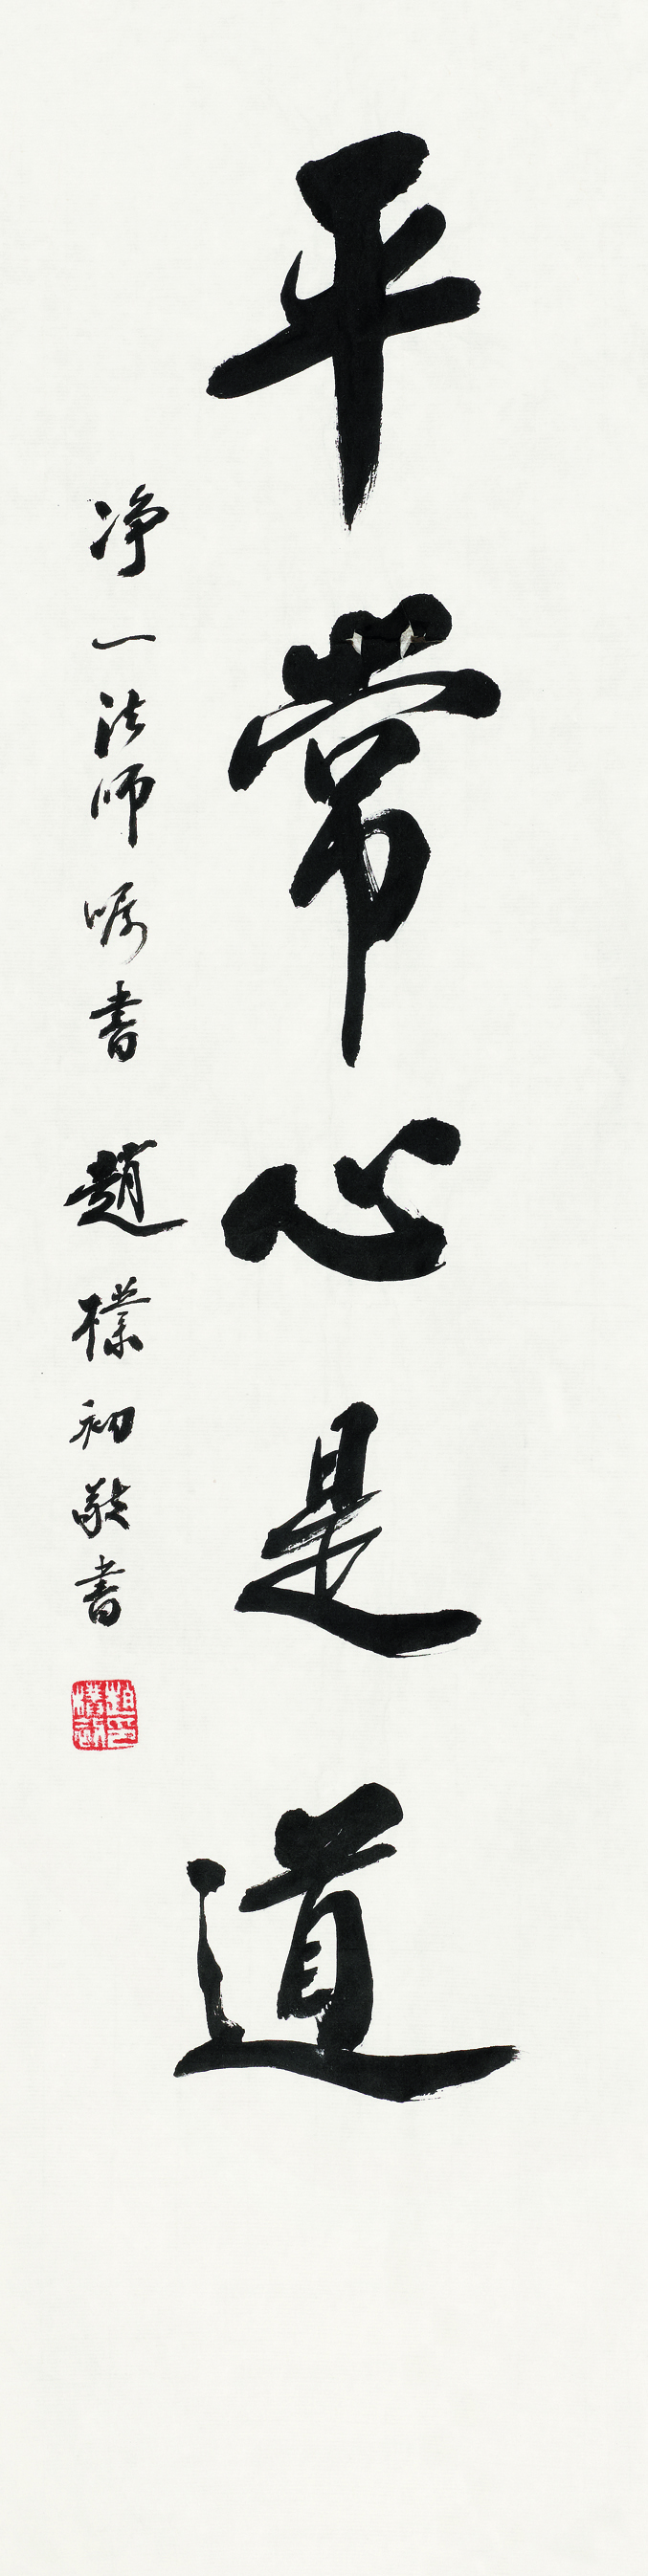 平常心是道
净一法师嘱书 趙樸初敬书
趙樸初印